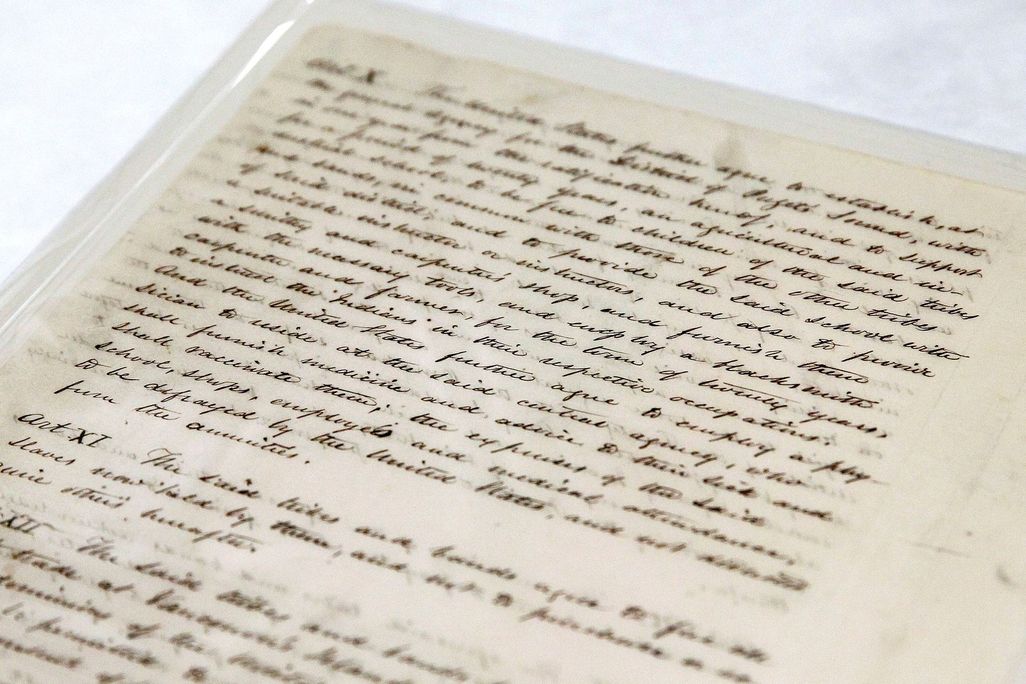 Art. X The United States further agree to establish, at
the general agency for the district of Puget Sound, within
one year from the ratification hereof, and to support
for a period of twenty years, an agricultural and in-
dustrial school, to be free to children of the said tribes
and bands, in common with those of the other tribes
of said district, and to provide the said school with
a suitable instructor or instructors, and also to provide
a smithy and carpenter's shop, and furnish them
with the necessary tools, and employ a blacksmith
carpenter and farmer for the term of twenty years,
to instruct the Indians in their respective occupations.
And the United States further agree to employ a phy-
sician to reside at the said central agency, who
shall furnish medicine and advice to their sick and
shall vaccinate them; the expenses of the said
school, shops, employés and medical attendance,
to be defrayed by the United States, and not deducted
from the annuities.
Art XI The said tribes and bands agree to free all
slaves now held by them, and not to purchase or ac-
quire others hereafter.
XII The said tribes and bands
trade at Vancouver's Island
dominions of the